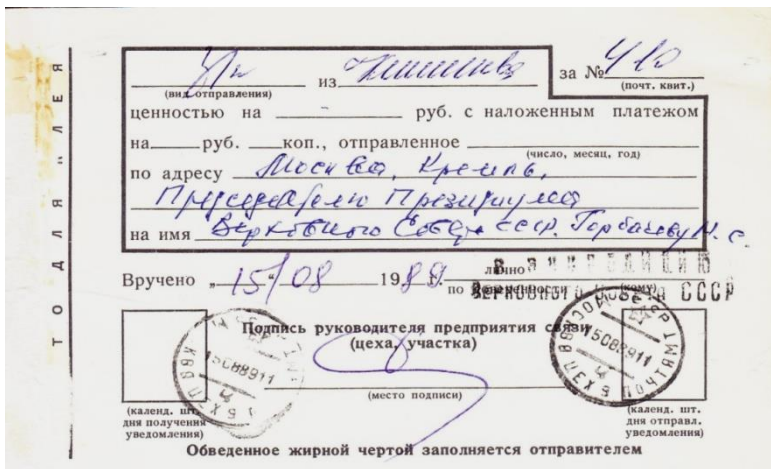 З/п из Кишинева за № 410
(вид отправления) (почт. квит.)
ценностью на - руб. с наложенным платежом
на руб. коп., отправленное
(число, месяц, год)
по адресу Москва, Кремль,
Председателю Президиума
на имя Верховного Совета СССР, Горбачеву М. С.
Вручено „15“ 08 1989 г. лично
по доверенности (кому)
ВЕРХОВНОГО СОВЕТА СССР
Подпись руководителя предприятия связи
(цеха, участка)
(место подписи)
(календ. шт.
дня получения
уведомления)
(календ. шт.
дня отправл.
уведомления)
МОСКВА ПОЧТАМТ
ЦЕХ 6
Обведенное жирной чертой заполняется отправителем